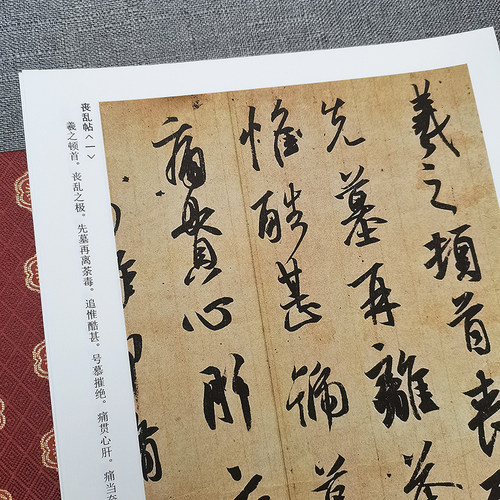 羲之頓首喪
先墓再離荼
惟酷甚號慕
痛貫心肝痛
丧乱帖〈一〉
羲之顿首。丧乱之极。先墓再离荼毒。追惟酷甚。号慕摧绝。痛贯心肝。痛当